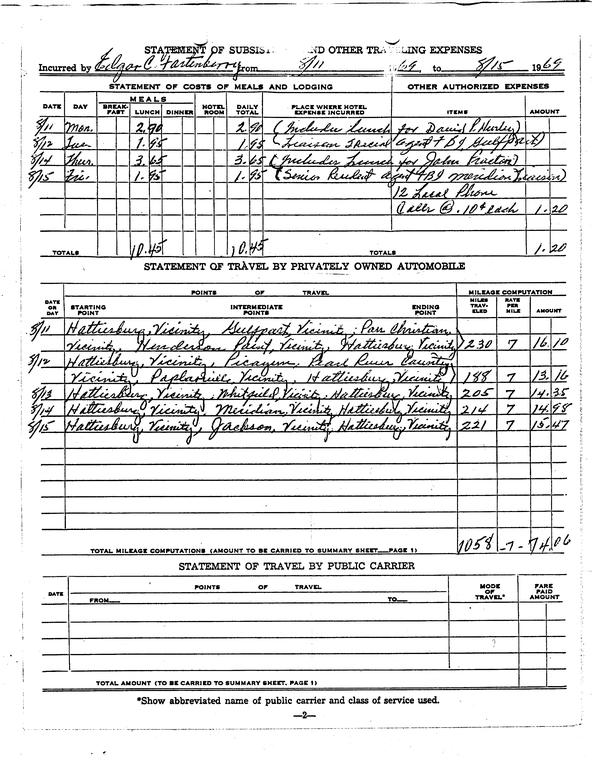 STATEMENT OF SUBSIS AND OTHER TRAVELING EXPENSES
Incurred by Edgar C. Fortenberry from 8/11 1969 to 8/15 1969
STATEMENT OF COSTS OF MEALS AND LODGING OTHER AUTHORIZED EXPENSES
DATE DAY MEALS BREAK-FAST LUNCH DINNER HOTEL ROOM DAILY TOTAL PLACE WHERE HOTEL EXPENSE INCURRED ITEMS AMOUNT
8/11 Mon. 2.90 2.90 (Includes lunch for David P. Hurley)
8/12 Tue. 1.95 1.95 Liaison Special agent FBI Gulfport)
8/14 Thur. 3.65 3.65 (Includes Lunch for John Proctor)
8/15 Fri. 1.95 1.95 (Senior Resident agent FBI Meridian Liaison)
12 Local Phone
Calls @ .10¢ each 1.20
TOTALS 10.45 10.45 TOTALS 1.20
STATEMENT OF TRAVEL BY PRIVATELY OWNED AUTOMOBILE
POINTS OF TRAVEL MILEAGE COMPUTATION
DATE OR DAY STARTING POINT INTERMEDIATE POINTS ENDING POINT MILES TRAV-ELED RATE PER MILE AMOUNT
8/11 Hattiesburg, Vicinity, Gulfport, Vicinity, Pass Christian
Vicinity, Henderson Point, Vicinity, Hattiesburg Vicinity) 230 7 16.10
8/12 Hattiesburg, Vicinity, Picayune, Pearl River County
Vicinity, Poplarville, Vicinity, Hattiesburg, Vicinity) 188 7 13.16
8/13 Hattiesburg, Vicinity, Whitfield, Vicinity, Hattiesburg, Vicinity 205 7 14.35
8/14 Hattiesburg, Vicinity, Meridian, Vicinity, Hattiesburg, Vicinity 214 7 14.98
8/15 Hattiesburg, Vicinity, Jackson, Vicinity, Hattiesburg, Vicinity 221 7 15.47
TOTAL MILEAGE COMPUTATIONS (AMOUNT TO BE CARRIED TO SUMMARY SHEET—PAGE 1) 1058 -7- 74.06
STATEMENT OF TRAVEL BY PUBLIC CARRIER
DATE POINTS OF TRAVEL MODE OF TRAVEL* FARE PAID AMOUNT
FROM— TO—
TOTAL AMOUNT (TO BE CARRIED TO SUMMARY SHEET, PAGE 1)
*Show abbreviated name of public carrier and class of service used.
—2—